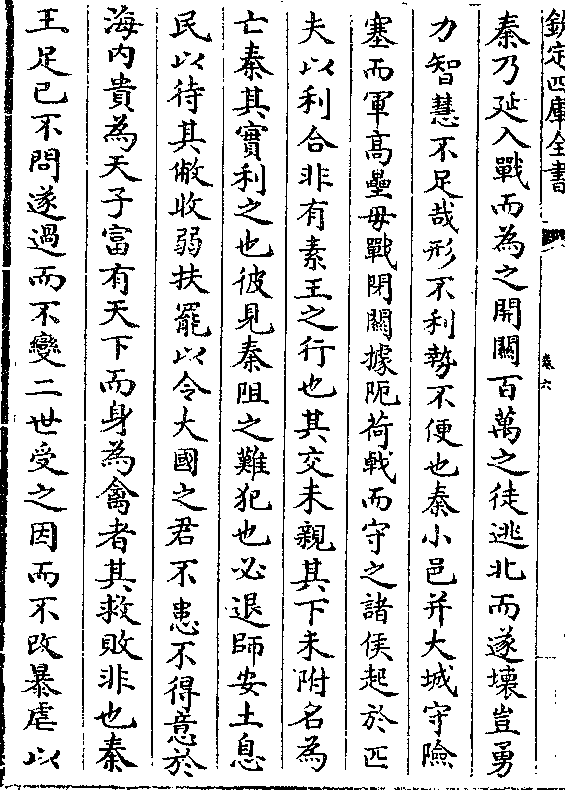 欽定四庫全書
卷六
秦乃延入戰而為之開關百萬之徒逃北而遂壞豈勇
力智慧不足哉形不利勢不便也秦小邑并大城守險
塞而軍高壘毋戰閉關據阨荷戟而守之諸侯起於匹
夫以利合非有素王之行也其交未親其下未附名為
亡秦其實利之也彼見秦阻之難犯也必退師安土息
民以待其敝收弱扶罷以令大國之君不患不得意於
海内貴為天子富有天下而身為禽者其救敗非也秦
王足已不問遂過而不變二世受之因而不改暴虐以